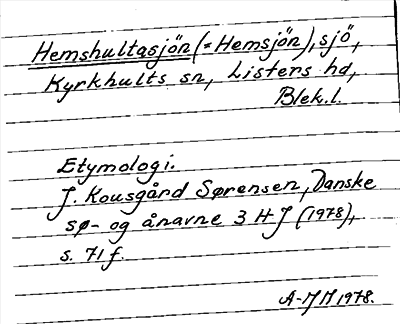 Hemshultasjön (= Hemsjön), sjö,
Kyrkhults sn, Listers hd,
Blek. l.
Etymologi.
J. Kousgård Sørensen, Danske
sø- og ånavne 3 H-J (1978),
s. 71 f.
1978.